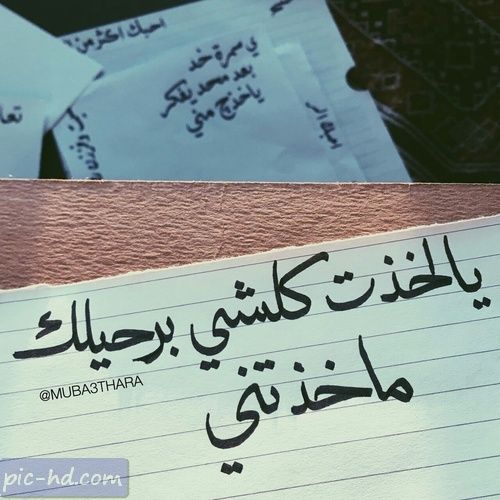 احبك اكثر من
بي سمرة خد
بعد محد يفكر
ياخذج مني
احبك
تعا
يالخذت كلشي برحيلك
ماخذتني
@MUBA3THARA
pic-hd.com